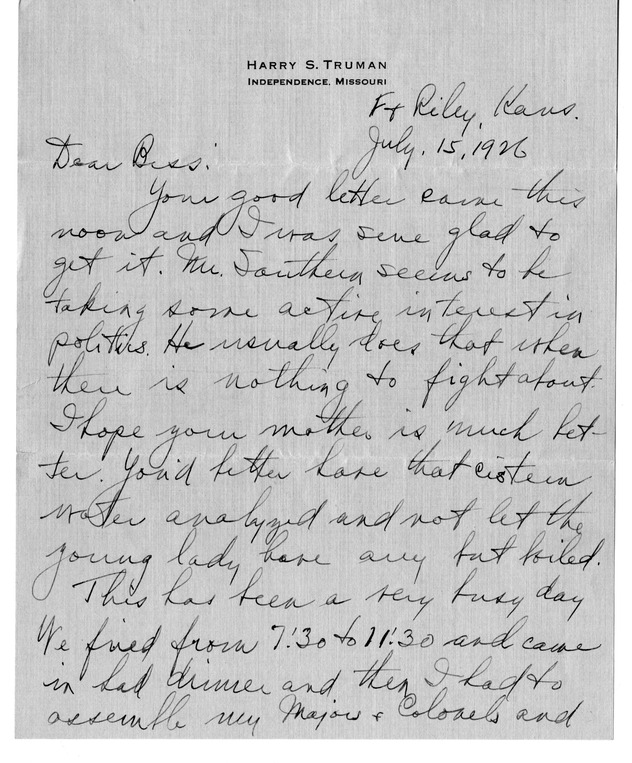 HARRY S. TRUMAN
INDEPENDENCE, MISSOURI
Ft Riley, Kans.
July. 15, 1926
Dear Bess:
Your good letter came this
noon and I was sure glad to
get it. Mr. Southern seems to be
taking some active interest in
politics. He usually does that when
there is nothing to fight about.
I hope your mother is much bet-
ter. You'd better have that cistern
water analyzed and not let the
young lady have any but boiled.
This has been a very busy day
We fired from 7:30 to 11:30 and came
in had dinner and then I had to
assemble my Majors & Colonels and